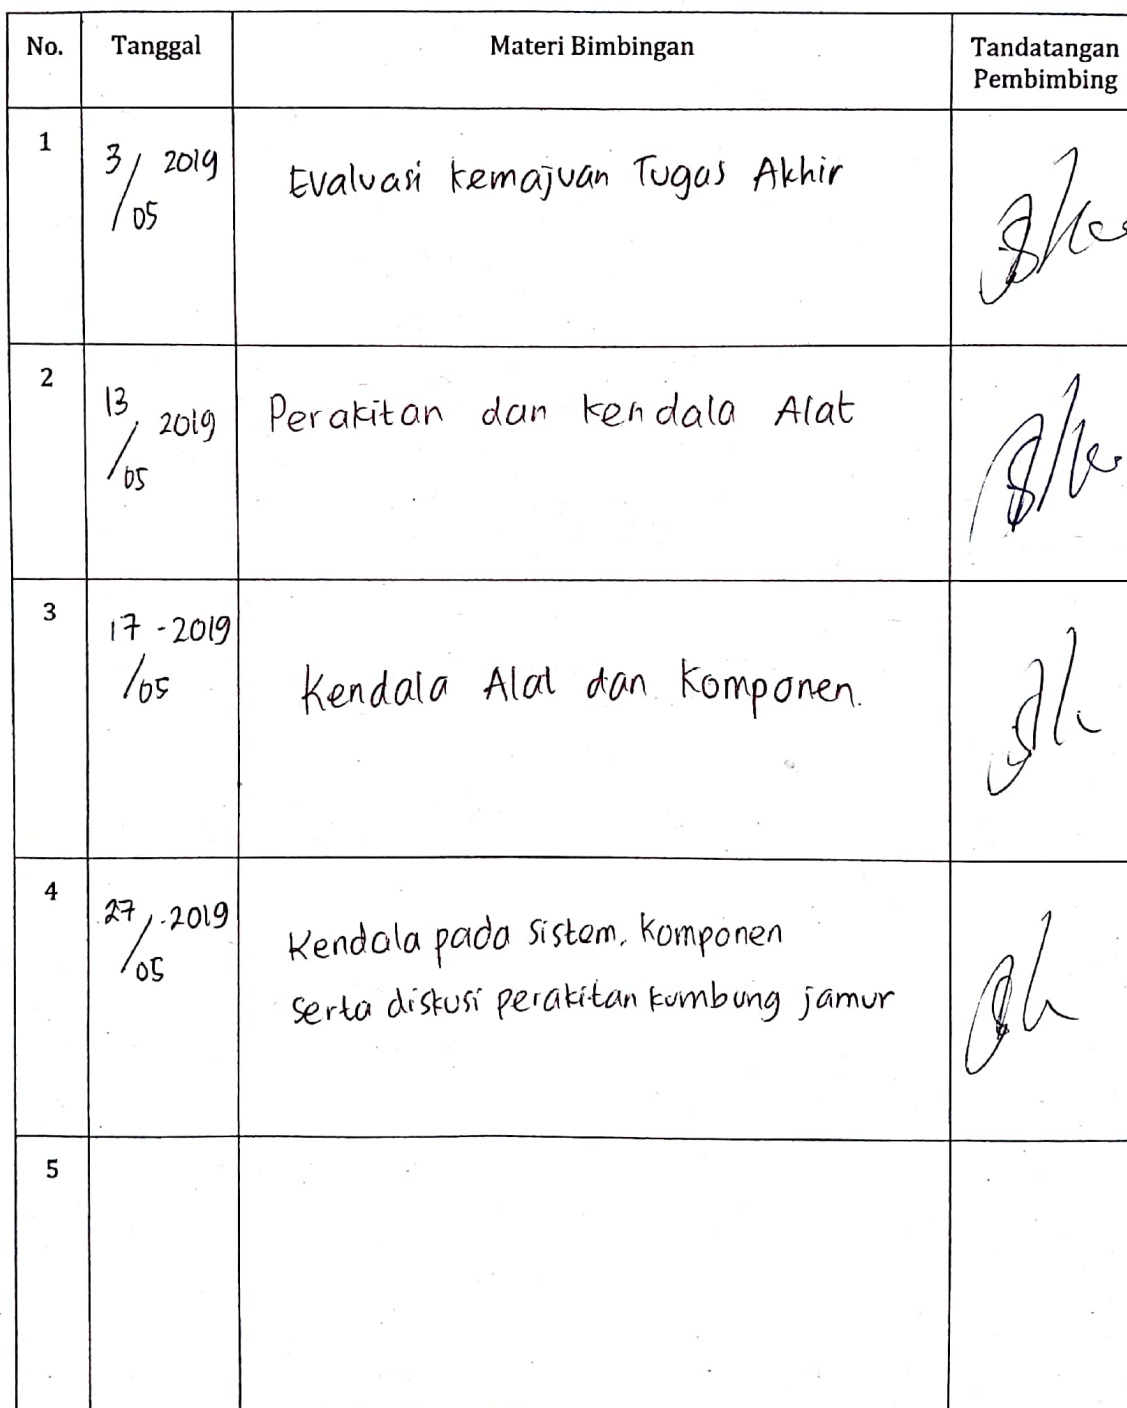 No. Tanggal Materi Bimbingan Tandatangan
Pembimbing
1
3/05 2019 Evaluasi kemajuan Tugas Akhir
2
13/05 2019 Perakitan dan kendala Alat
3
17/05 - 2019 Kendala Alat dan Komponen.
4
27/05 - 2019 Kendala pada sistem, komponen
serta diskusi perakitan kumbung jamur
5